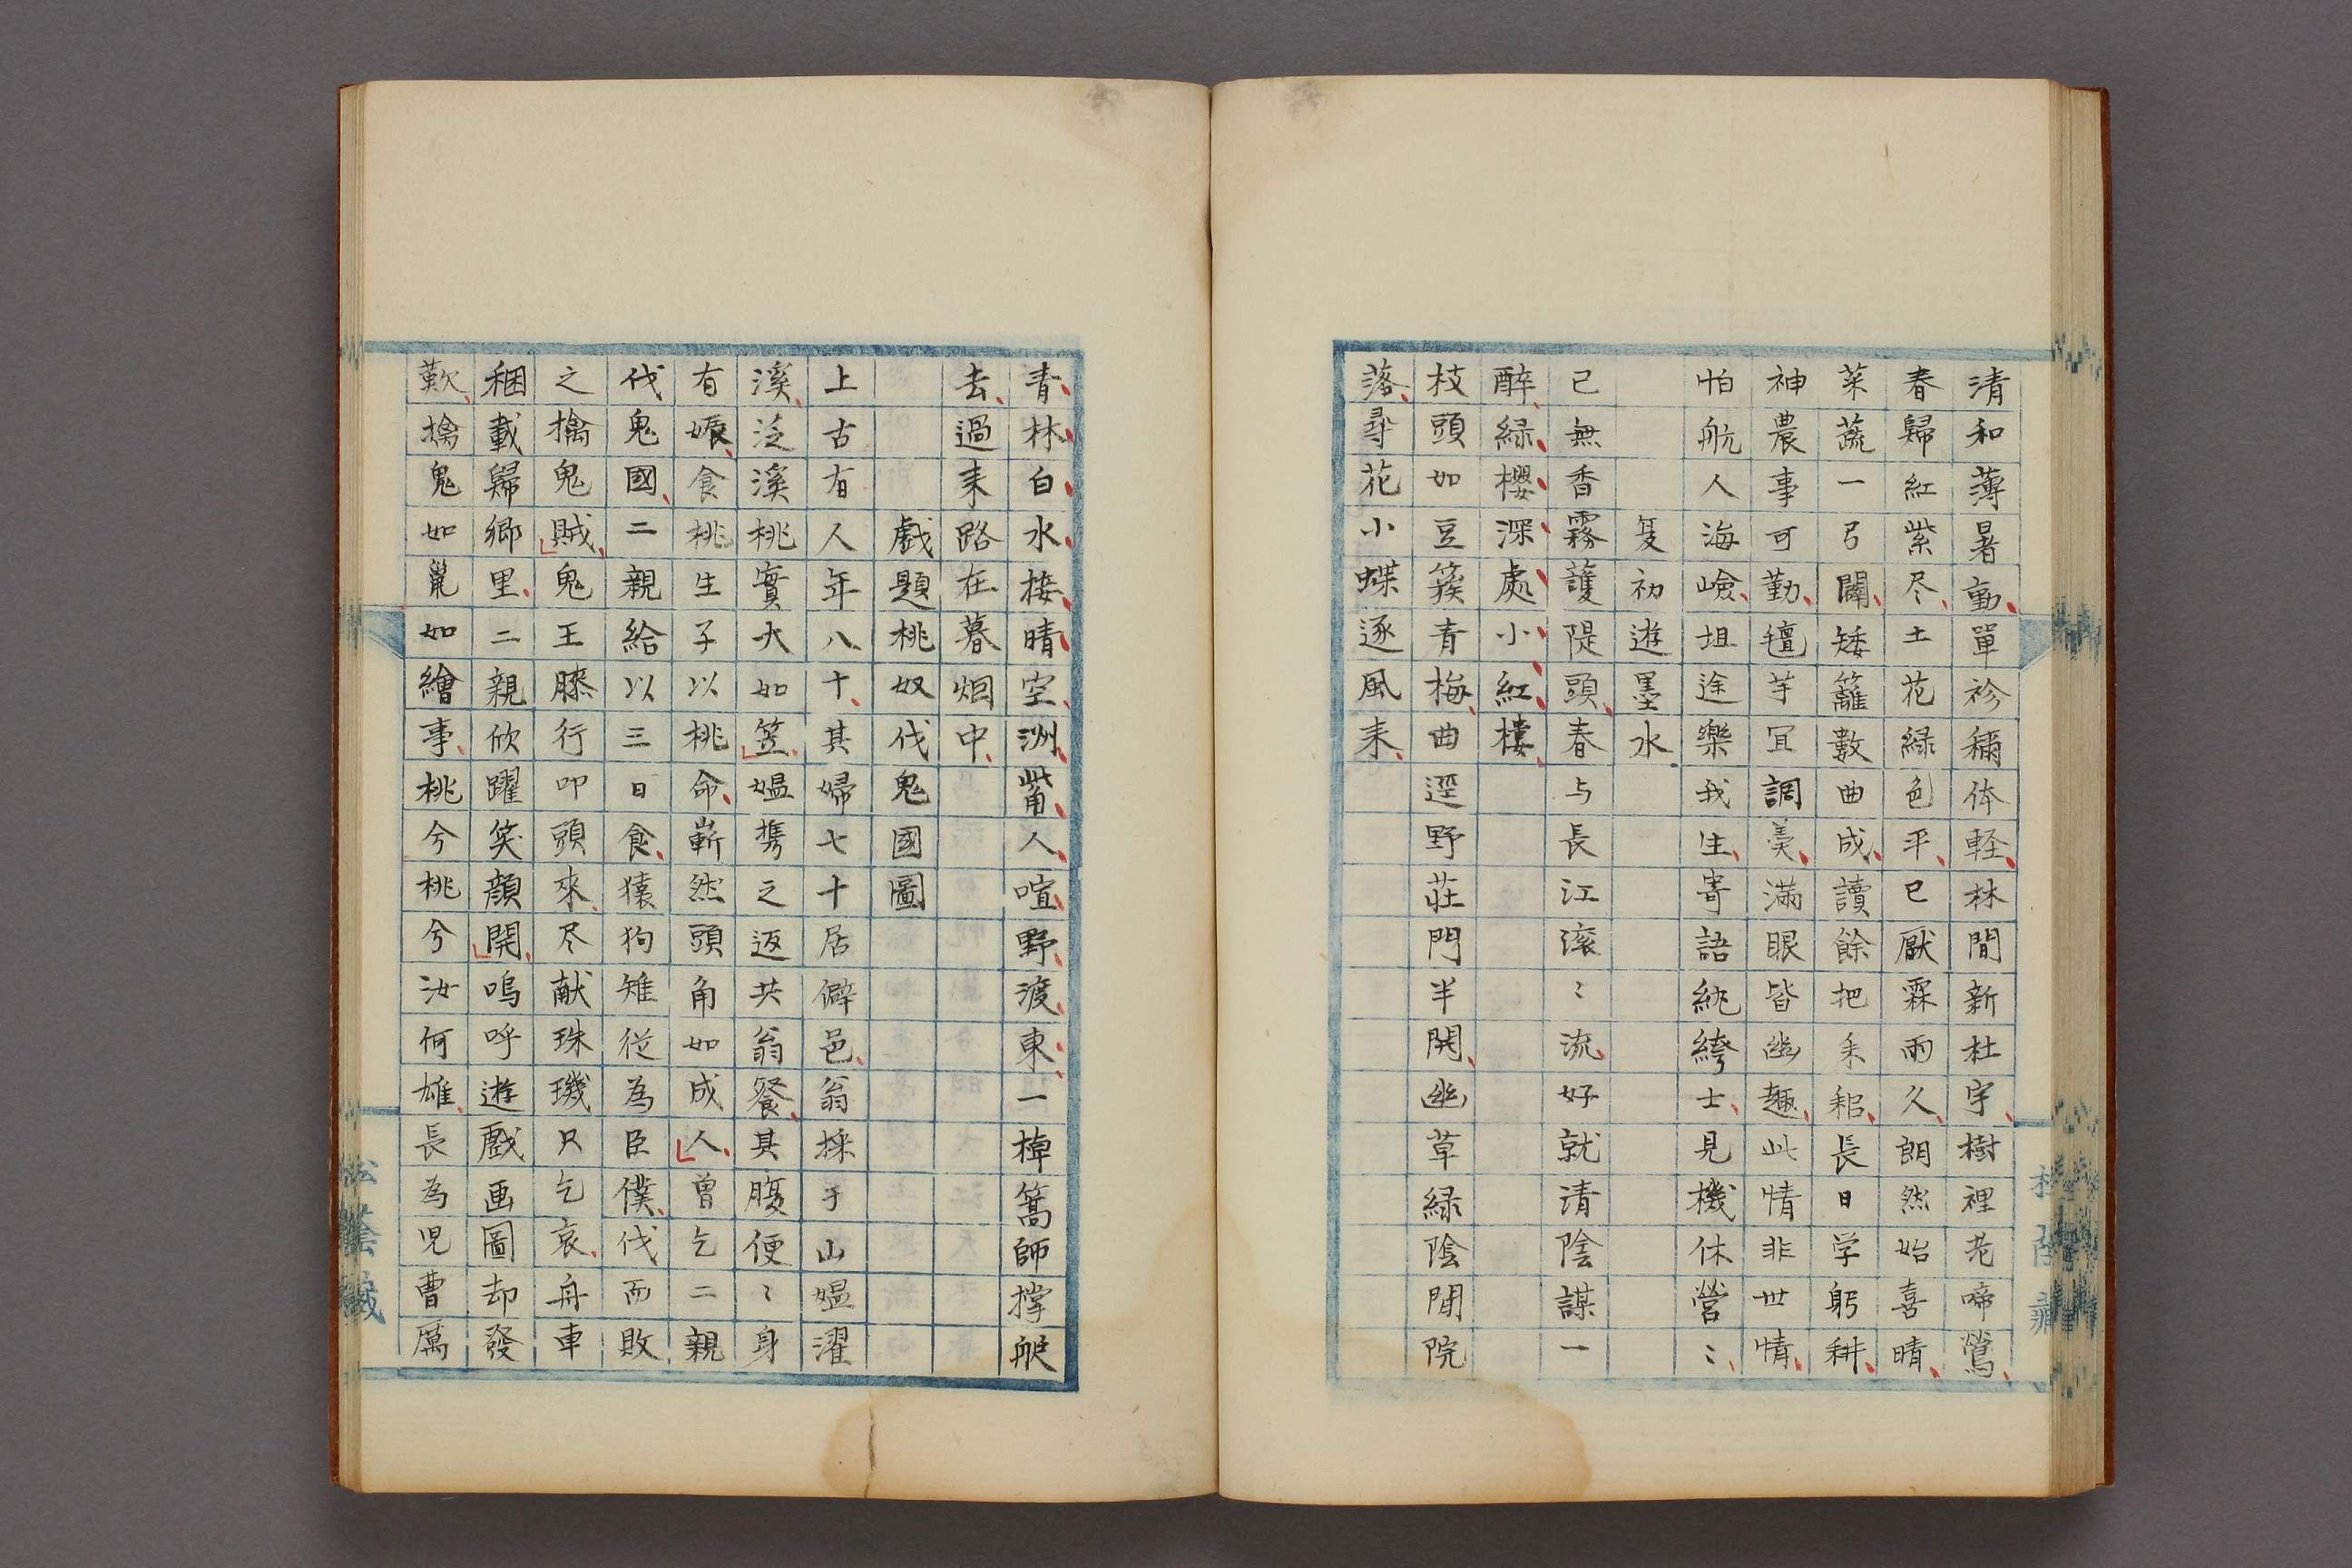 清和薄暑動單袗稱体軽林間新杜宇樹裡老啼鶯
春歸紅紫尽土花緑色平已厭霖雨久朗然始喜晴
菜蔬一弓闢矮籬數曲成讀餘把耒耜長日学躬耕
神農事可勤䄠芋冝調羮滿眼皆幽趣此情非世情
怕航人海嶮坦途樂我生寄語紈絝士見機休營〻
夏初遊墨水
已無香霧護隄頭春与長江滚〻流好就清陰謀一
醉緑櫻深處小紅樓
枝頭如豆簇青梅曲逕野莊門半開幽草緑陰閒院
落尋花小蝶逐風来
青林白水接晴空洲觜人喧野渡東一棹篙師撑艇
去過来路在暮烟中
戲題桃奴伐鬼國圖
上古有人年八十其婦七十居僻邑翁採于山媼濯
溪泛溪桃實大如笠媼携之返共翁餐其腹便〻身
有娠食桃生子以桃命嶄然頭角如成人曽乞二親
伐鬼國二親給以三日食猿狗雉從為臣僕伐而敗
之擒鬼賊鬼王膝行叩頭來尽献珠璣只乞哀舟車
稛載歸鄉里二親欣躍笑顔開嗚呼遊戲画圖却發
歎擒鬼如鼠如繪事桃兮桃兮汝何雄長為児曹厲
松蔭藏